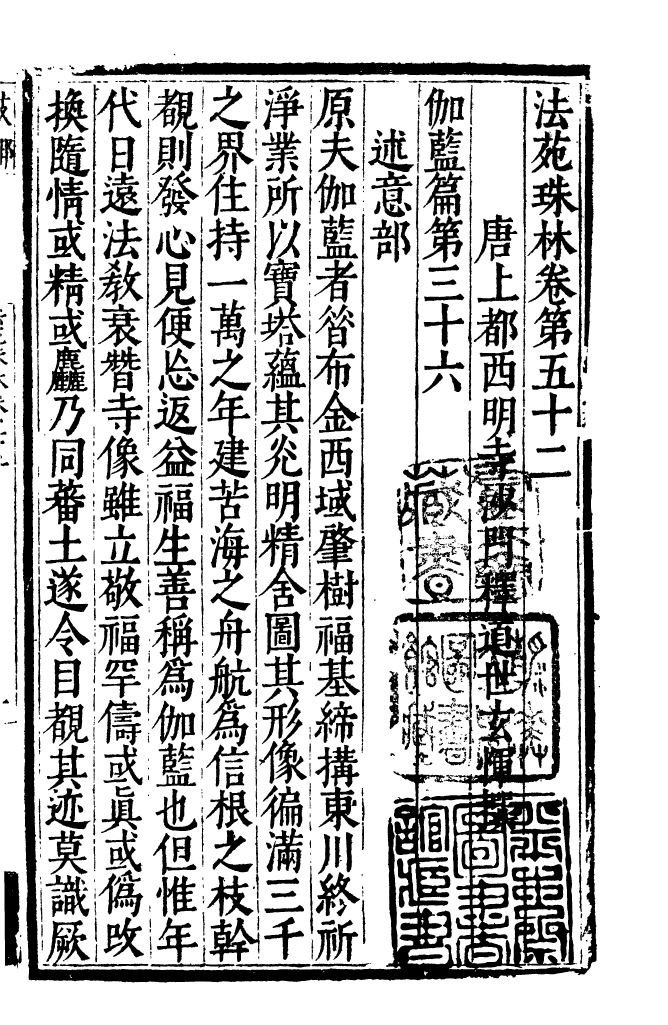 法苑珠林卷第五十二
唐上都西明寺沙門釋道世玄惲撰
伽藍篇第三十六
述意部
原夫伽藍者㫺布金西域肇樹福基締搆東川終祈
淨業所以寶塔蘊其光明精舍圖其形像徧滿三千
之界住持一萬之年建苦海之舟航爲信根之枝幹
覩則發心見便忘返益福生善稱爲伽藍也但惟年
代日遠法教衰替寺像雖立敬福罕儔或眞或僞改
換隨情或精或麤乃同蕃土遂令目覩其迹莫識厥